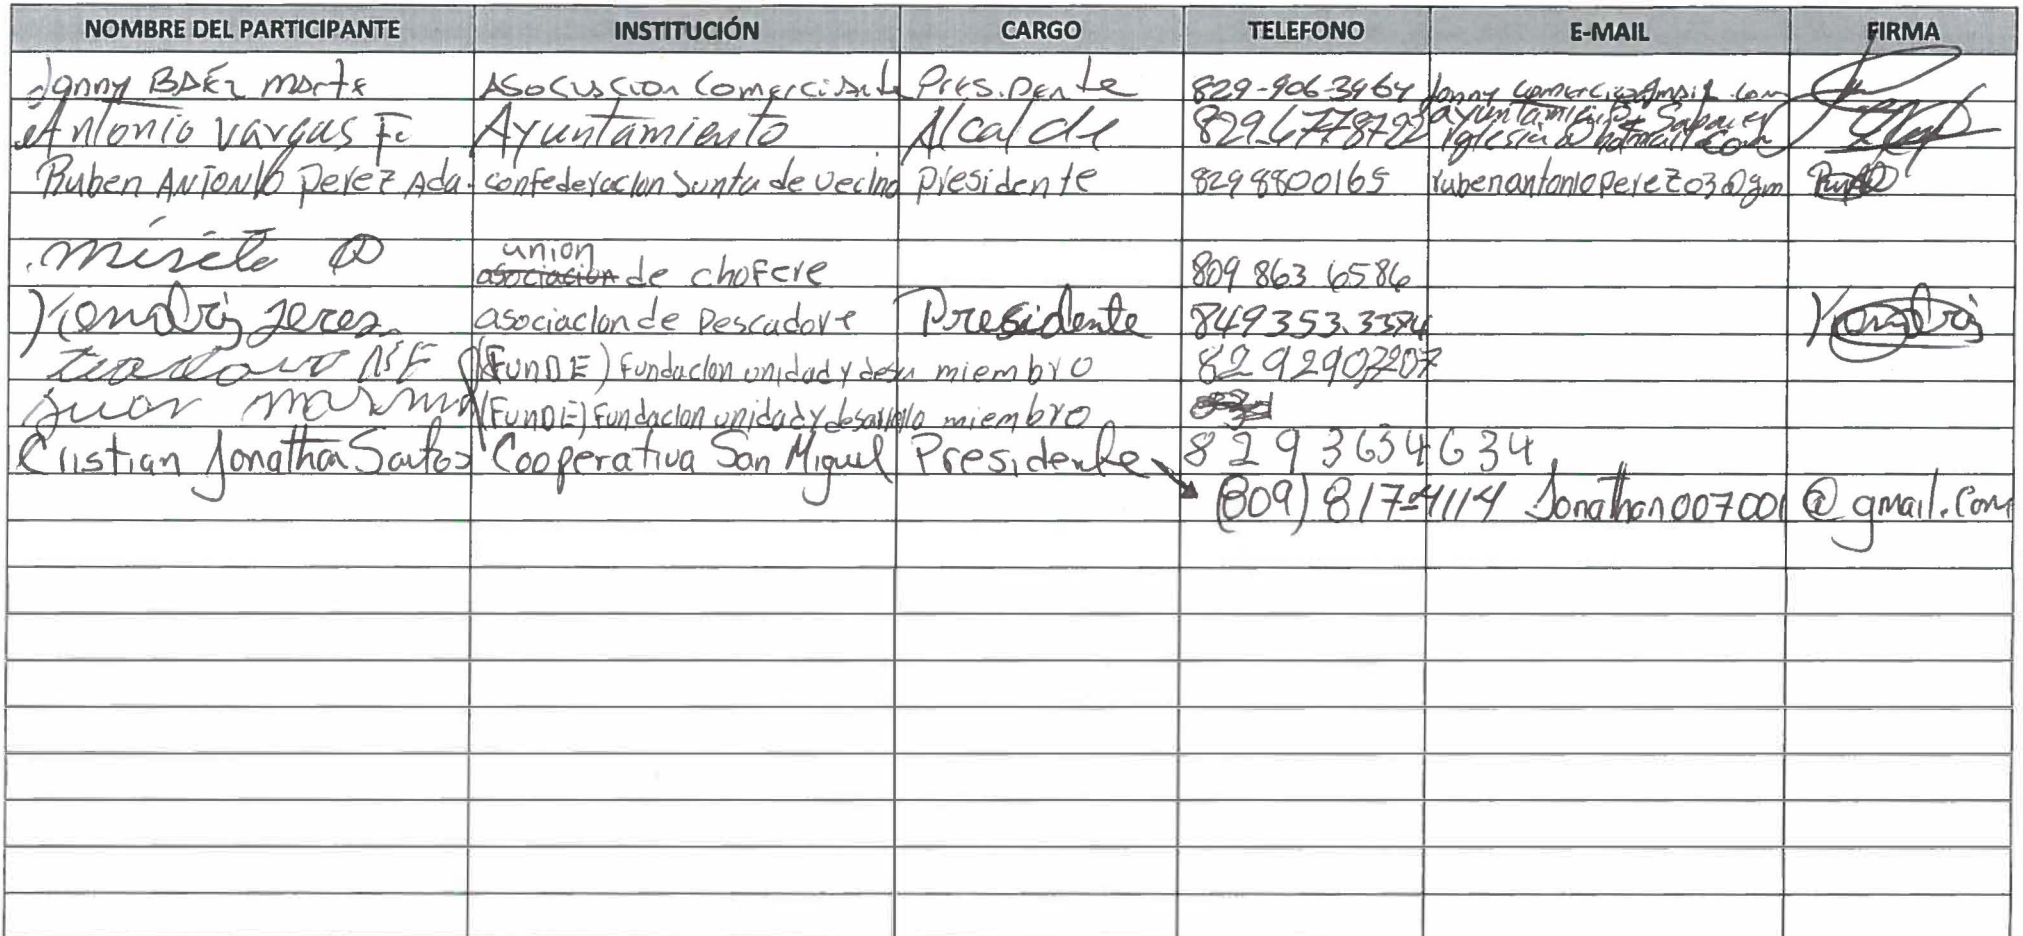 NOMBRE DEL PARTICIPANTE INSTITUCIÓN CARGO TELEFONO E-MAIL FIRMA
Janny BAEz Marte Asocuscion Comerciante Presidente 829-906-3964
Antonio Vargas Fc Ayuntamiento Alcalde 829-6778722
Ruben ANTONIO Perez Ada. confederacion Junta de vecino presidente 8298800165 rubenantonioperez03@gm
union
asociacion de chofere 809 863 6586
asociacion de Pescadore Presidente 849353.3384
(FUNDE) Fundacion unidad y desa miembro 8292907207
(FUNDE) Fundacion unidad y desarrollo miembro
Cristian Jonathan Santos Cooperativa San Miguel Presidente 8293634634
(809) 817-4114 Jonathan007001@gmail.com